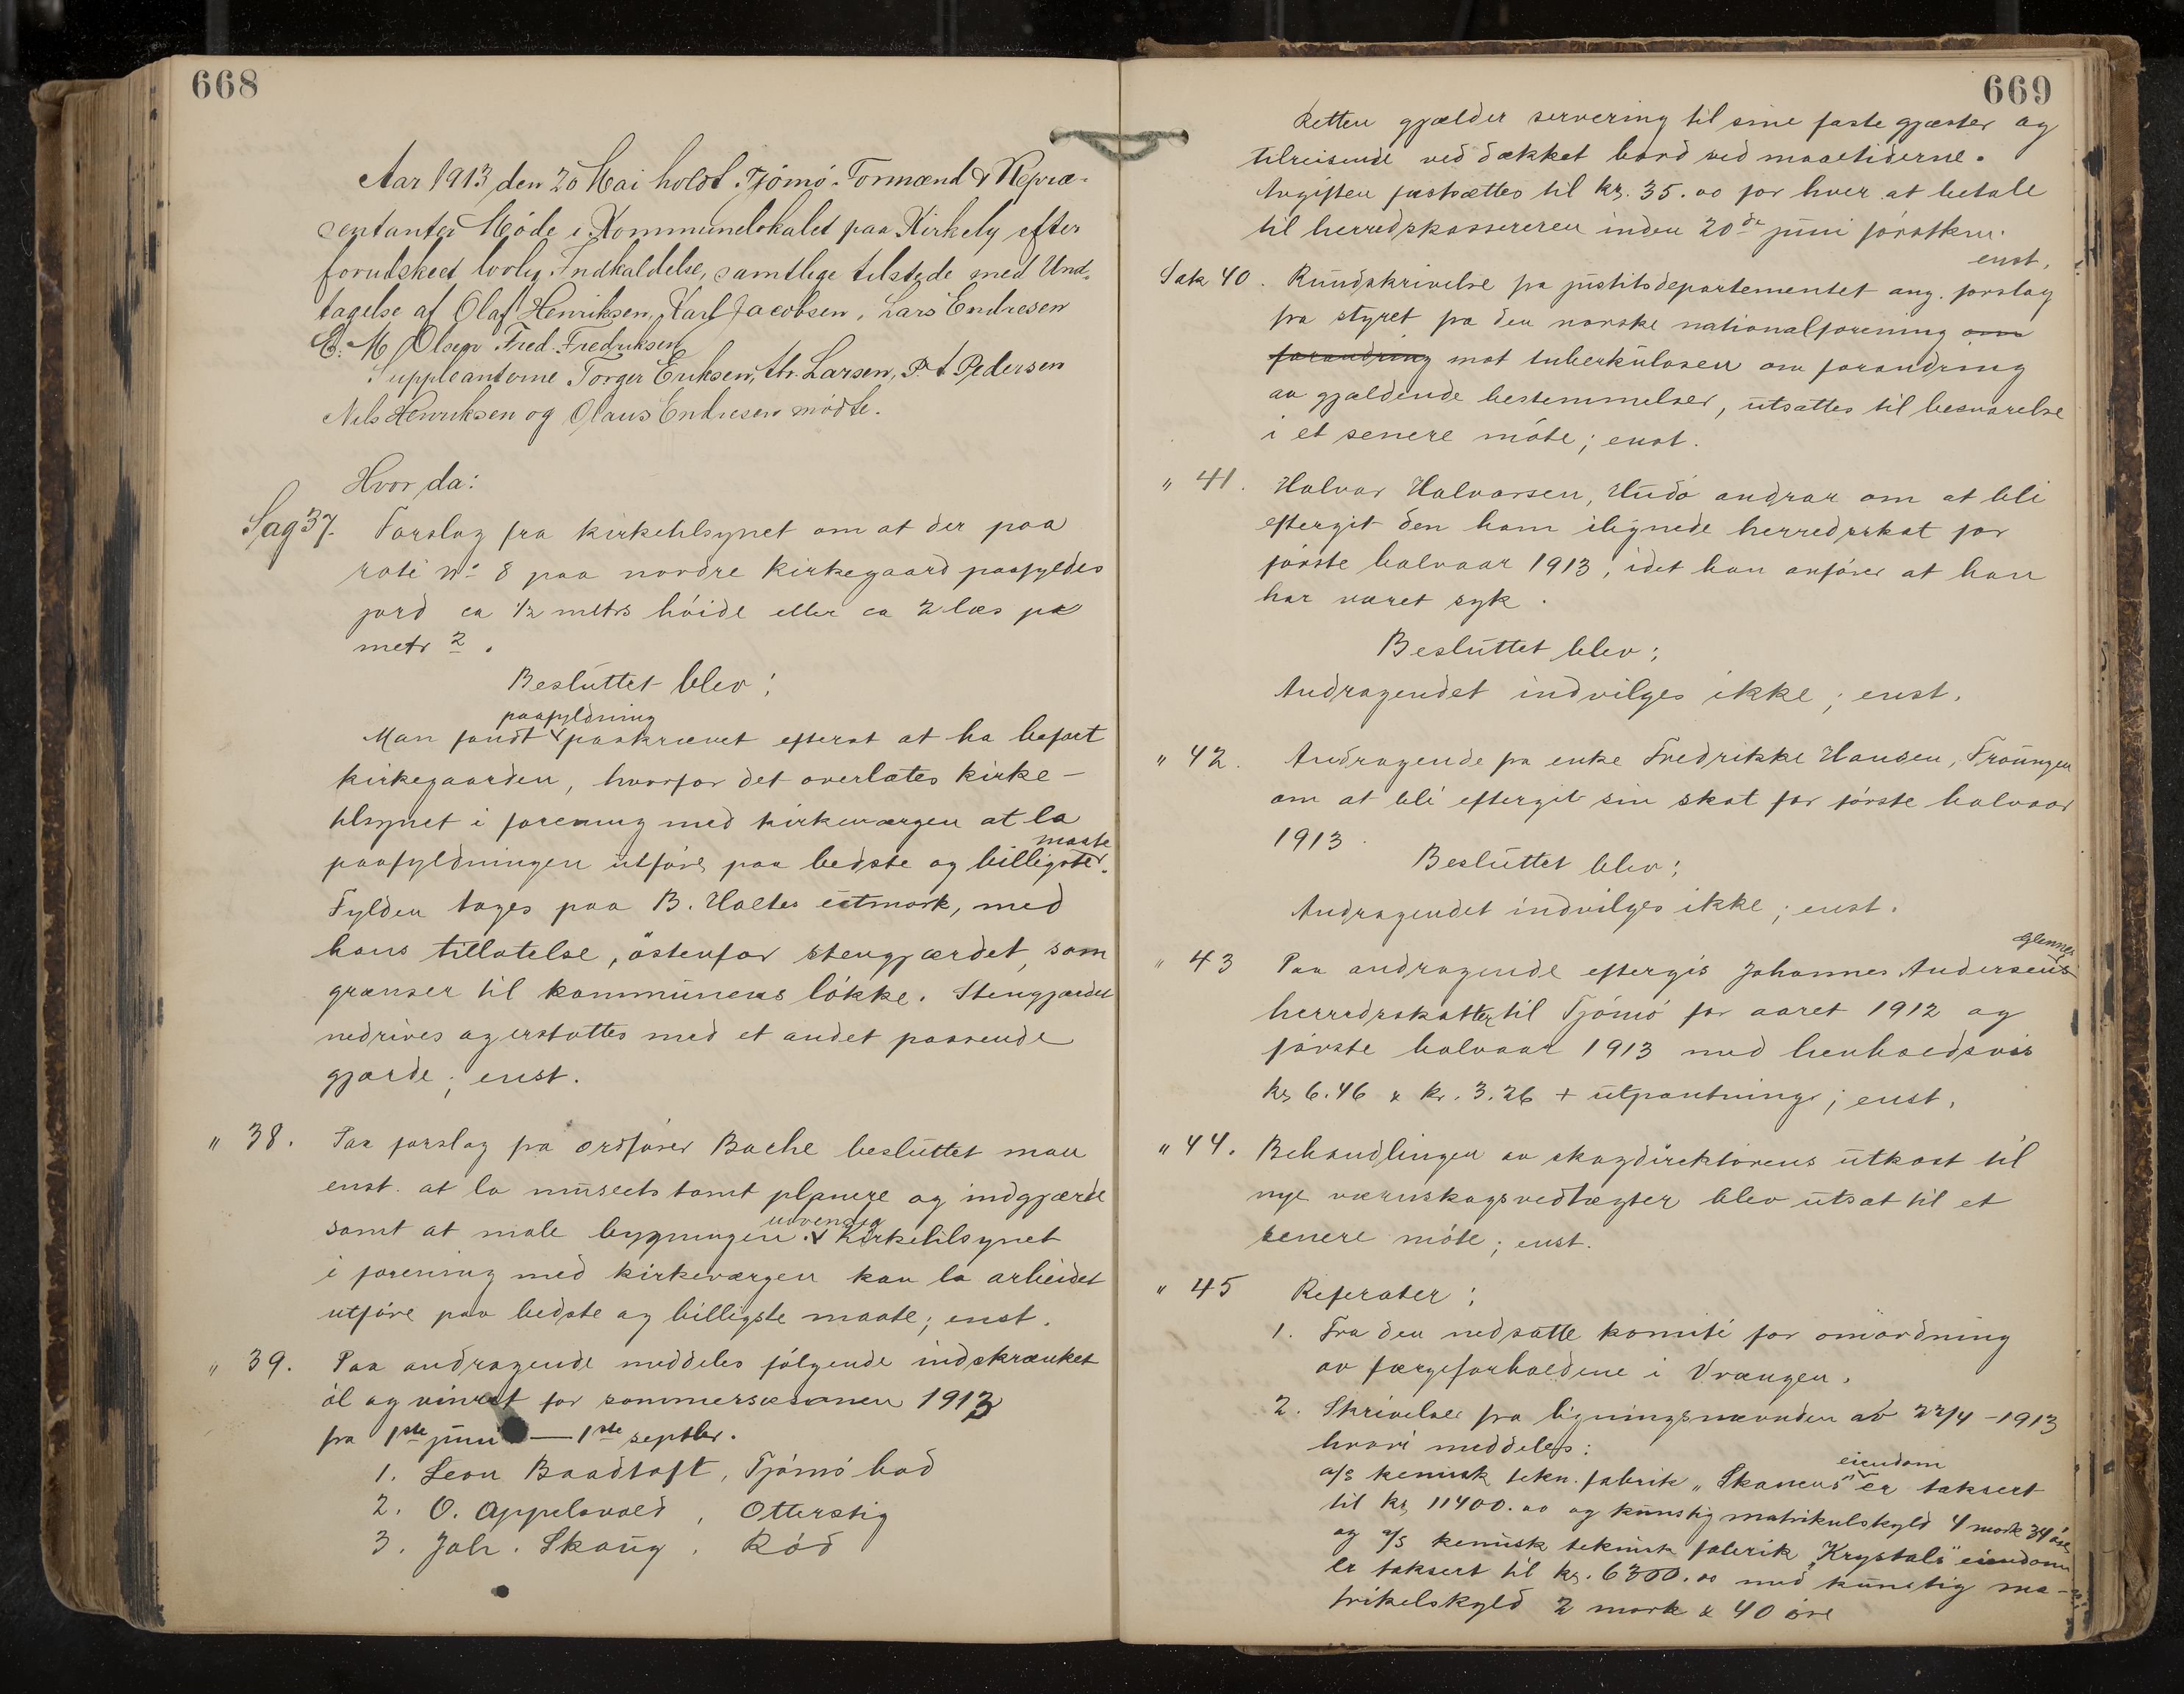 668
Aar 1913 den 20 Mai holdt Tjömö Formænd & Repræ-
sentanter Möde i Kommunelokalet paa Kirkely efter
forutskeet lovlig Indkaldelse, samtlige tilstede med Und-
tagelse af Olaf Henriksen, Karl Jacobsen, Lars Endresen
E. M. Olsen Fred. Fredriksen
Suppleanterne Torger Eriksen, Chr. Larsen, P. A Pedersen
Nils Henriksen og Olaus Endresen mödte.
Hvor da:
Sag 37. Forslag fra kirketilsynet om at der paa
rode No 8 paa nordre kirkegaard paafyldes
jord ca 1/2 metrs höide eller ca 2 læs pr
metr 2.
Besluttet blev:
paafyldning
Man fandt paakrævet efterat at ha befart
kirkegaarden, hvorfor det overlates kirke-
tilsynet i forening med kirkeværgen at la
maate
paafyldningen utföre paa bedste og billigste.
Fylden tages paa B. Holtes utmark, med
hans tillatelse, östenfor stengjærdet, som
grænser til kommunens lökke. Stengjærdet
nedrives og erstattes med et andet passende
gjærde; enst.
" 38. Paa forslag fra ordförer Bache besluttet man
enst. at la museets tomt planere og indgjærde
utvendig
samt at male bygningen. Kirketilsynet
i forening med kirkeværgen kan la arbeidet
utföre paa bedste og billigste maate; enst.
" 39. Paa andragende meddeles fölgende indskrænket
öl og vinret for sommersæsonen 1913
fra 1ste juni — 1ste septbr.
1. Leon Baadtoft, Tjömö bad
2. O. Appelsvold, Otterstig
3. Joh. Skaug, Röd
669
Retten gjælder servering til sine faste gjæster og
tilreisende ved dækket bord ved maaltiderne.
Avgiften fastsættes til kr. 35.00 for hver at betale
til herredskassereren inden 20de juni förstkm.
enst.
Sak 40. Rundskrivelse fra justitsdepartementet ang. forslag
fra styret fra den norske nationalforening om
forandring mot tuberkulosen om forandring
av gjældende bestemmelser, utsattes til besvarelse
i et senere möte; enst.
" 41. Halvar Halvorsen, Hudö andrar om at bli
eftergit den ham ilignede herredsskat for
förste halvaar 1913, idet han anförer at han
har været syk.
Besluttet blev:
Andragendet indvilges ikke; enst.
" 42. Andragende fra enke Fredrikke Hansen,
om at bli eftergit sin skat for förste halvaar
1913.
Besluttet blev:
Andragendet indvilges ikke; enst.
Glenne
" 43 Paa andragende eftergis Johannes Andersens
herredsskatter til Tjömö for aaret 1912 og
förste halvaar 1913 med henholdsvis
kr 6.46 & kr. 3.26 + utpantning; enst.
" 44. Behandlingen av skogdirektörens utkast til
nye værnskogsvedtægter blev utsat til et
senere möte; enst.
" 45 Referater:
1. Fra den nedsatte komité for omordning
av færgeforholdene i Vrængen.
2. Skrivelse fra ligningsnævnden av 22/4-1913
hvori meddeles:
eiendom
a/s kemisk tekn. fabrik "Skanens" er taksert
til kr 11400.00 og kunstig matrikulskyld 4 mark 34 öre
og a/s kemisk teknisk fabrik "Krystals" eiendom
er taksert til kr. 6300.00 med kunstig ma-
trikelskyld 2 mark & 40 öre